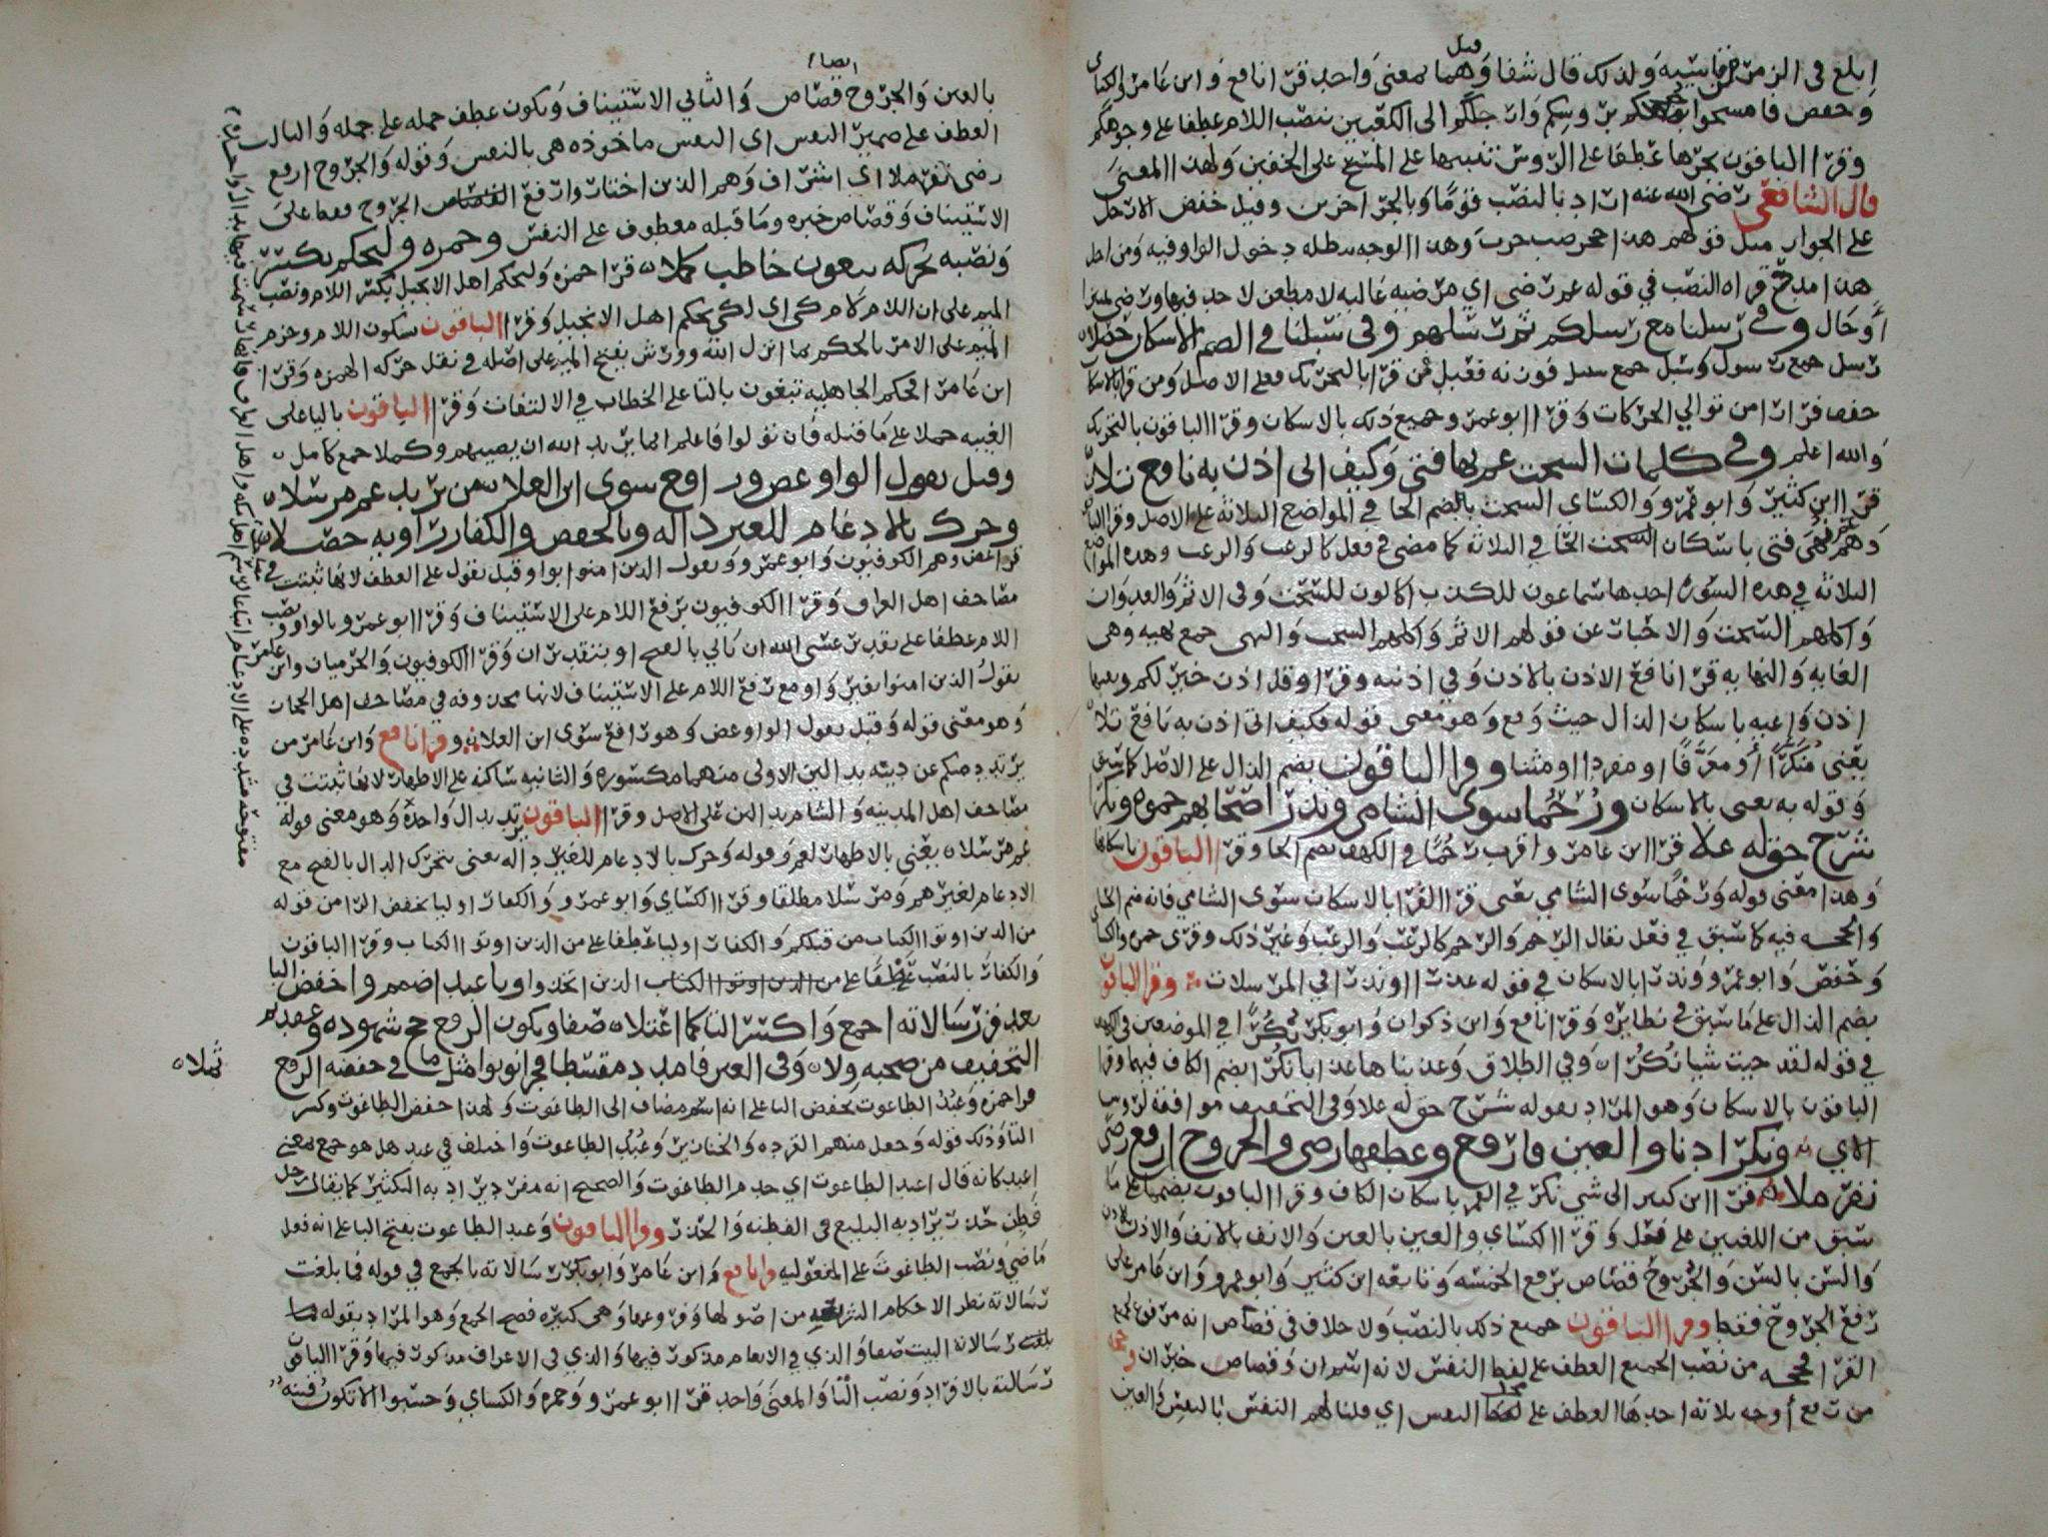 ابلغ في الذم من قاسيه ولذلك قال شفا وقيل هما بمعنى واحد قرا نافع وابن عامر والكسائي
وحفص فامسحوا برؤسكم وارجلكم الى الكعبين بنصب اللام عطفا على وجوهكم
وقرا الباقون بجرها عطفا على الروس تنبيها على المسح على الخفين ولهذا المعنى
قال الشافعي رضي الله عنه اراد بالنصب قوما وبالجر اخرين وقيل خفض الارجل
على الجوار مثل قولهم هذا جحر ضب خرب وهذا الوجه يبطله دخول الواو فيه ومن اجل
هذا مدح قراه النصب في قوله عم رضى اي مرضيه غالبه لا مطعن لاحد فيها
وفي رسلنا مع رسلكم ثم رسلهم وفي سبلنا في الضم الاسكان حصلا
رسل جمع رسول وسبل جمع سبيل فمن قرا بالتحريك فعلى الاصل ومن قرا بالاسكان
خفف فرارا من توالي الحركات وقرا ابو عمرو جميع ذلك بالاسكان وقرا الباقون بالتحريك
والله اعلم وفي كلمات السحت عم نهى فتى وكيف اتى اذن به نافع تلا
قرا ابن كثير وابو عمرو والكسائي السحت بالضم الحا في المواضع الثلاثة على الاصل وقرا
فتى باسكان الحا في الثلاثة كما مضى في فعل كالرعب والرعب وهذه المواضع
الثلاثة في هذه السورة احدها سماعون للكذب اكالون للسحت وفي الاثم والعدوان
واكلهم السحت والاحبار عن قولهم الاثم واكلهم السحت والنهى جمع نهيه وهي
الغايه والنهايه قرا نافع الاذن بالاذن وفي اذنيه وقرا وقل اذن خير لكم وتعيها
اذن واعيه باسكان الذال حيث وقع وهو معنى قوله فكيف اتى اذن به نافع تلا
يعني منكرا او معرفا او مفردا او مثنا وقرا الباقون بضم الذال على الاصل كما سبق
وقوله به يعني بالاسكان ورحما سوى الشامي ونذرا صحابهم حموه ونكرا
شرع حق له علا قرا ابن عامر واقرب رحما في الكهف بضم الحا وقرا الباقون باسكانها
وهذا معنى قوله ورحما سوى الشامي يعني قرا القرا بالاسكان سوى الشامي فانه ضم الحا
والحجه فيه كما سبق في فعل يقال الرحم والرحم كالرعب والرعب وغير ذلك وقرى حمزه والكسائي
وحفص وابو عمرو ونذرا بالاسكان في قوله عذرا او نذرا في المرسلات وقرا الباقون
بضم الذال على ما سبق في نظايره وقرا نافع وابن ذكوان وابو بكر نكرا في الموضعين في الكهف
في قوله لقد جيت شيا نكرا وفي الطلاق وعذبناها عذابا نكرا بضم الكاف فيهما وقرا
الباقون بالاسكان وهو المراد بقوله شرع حق له علا وفي التخفيف موافقه
ونكر دنا والعين فارفع وعطفها رضى والجروح ارفع رضى
نفر ملا قرا ابن كثير الى شي نكر في القمر باسكان الكاف وقرا الباقون بضمها على ما
سبق من اللغتين على فعل وقرا الكسائي والعين بالعين والانف بالانف والاذن بالاذن
والسن بالسن والجروح قصاص برفع الخمسه وتابعه ابن كثير وابو عمرو وابن عامر على
رفع الجروح فقط وقرا الباقون جميع ذلك بالنصب ولا خلاف في قصاص انه مرفوع لجميع
القرا وحجه من نصب الجميع العطف على لفظ النفس لانه اسم ان وقصاص خبر ان وحجه
من رفع اوجه ثلاثه احدها العطف على محل النفس اي قلنا لهم النفس بالنفس والعين
ايضا
بالعين والجروح قصاص والثاني الاستيناف ويكون عطف جمله على جمله والثالث
العطف على ضمير النفس اي النفس ماخوذه هي بالنفس وقوله والجروح ارفع
رضى نفر ملا اي اشراف وهم الذين اختاروا رفع القصاص الجروح فيها على
الاستيناف وقصاص خبره وما قبله معطوف على النفس وحمزه وليحكم بكسر
ونصبه يحركه تبغون خاطب كملا قرا حمزه وليحكم اهل الانجيل بكسر اللام ونصب
الميم على ان اللام لام كي اي لكي يحكم اهل الانجيل وقرا الباقون بسكون اللام وجزم
الميم على الامر بالحكم بما انزل الله وورش بفتح الميم على اصله في نقل حركه الهمزه وقرا
ابن عامر افحكم الجاهليه تبغون بالتا على الخطاب في الالتفات وقرا الباقون باليا على
الغيبه حملا على ما قبله فان تولوا فاعلم انما يريد الله ان يصيبهم وكملا جمع كامل
وقبل يقول الواو غصن ورافع سوى ابن العلا من يرتدد عم مرسلا
وحرك بالادغام للغير داله وبالخفض والكفار راويه حصلا
قرا غصن وهم الكوفيون وابو عمرو ويقول الذين امنوا بواو قبل يقول على العطف لانها ثبتت في
مصاحف اهل العراق وقرا الكوفيون برفع اللام على الاستيناف وقرا ابو عمرو بالواو ونصب
اللام عطفا على تقدير عسى الله ان ياتي بالفتح او بتقدير ان وقرا الكوفيون والحرميان وابن عامر
يقول الذين امنوا بغير واو مع رفع اللام على الاستيناف لانها محذوفه في مصاحف اهل الحجاز
وهو معنى قوله وقبل يقول الواو غصن وهو رافع سوى ابن العلا وقرا نافع وابن عامر من
يرتدد منكم عن دينه بدالين الاولى منهما مكسوره والثانيه ساكنه على الاظهار لانها ثبتت في
مصاحف اهل المدينه والشام بدالين على الاصل وقرا الباقون يرتد بدال واحدة وهو معنى قوله
عم مرسلا يعني بالاظهار لعم وقوله وحرك بالادغام للغير داله يعني بتحرك الدال بالفتح مع
الادغام لغيرهم ومرسلا مطلقا وقرا الكسائي وابو عمرو والكفار اوليا بخفض الرا من قوله
من الذين اوتوا الكتاب من قبلكم والكفار اوليا عطفا على من الذين اوتوا الكتاب وقرا الباقون
والكفار بالنصب عطفا على من الذين اوتوا الكتاب الذين اتخذوا وبا عبد اضمم واخفض التا
بعد فز رسالاته اجمع واكسر التا كما اعتلا صفا ويكون الرفع حج شهوده وعقدتم
التخفيف من صحبه ولا وفي العين فامدد مقسطا فجزا نونوا مثل ما في خفضه الرفع
ثملا
قرا حمزه وعبد الطاغوت بخفض التا على انه اسم مضاف الى الطاغوت ولهذا خفض الطاغوت وكسر
التا وذلك قوله وجعل منهم القرده والخنازير وعبد الطاغوت واختلف في عبد هل هو جمع بمعنى
اعبد كانه قال اعبد الطاغوت اي خدم الطاغوت والصحيح انه مفرد يراد به التكثير كما يقال رجل
فطن حذر يراد به البليغ في الفطنه والحذر وقرا الباقون وعبد الطاغوت بفتح البا على انه فعل
ماضي ونصب الطاغوت على المفعوليه وقرا نافع وابن عامر وابو بكر رسالاته بالجمع في قوله فما بلغت
رسالاته نظر الاحكام الشريعه من اصولها وفروعها وهي كثيره فصح الجمع وهو المراد بقوله
رسالاته البيت صفا والذي في الانعام مذكور فيها والذي في الاعراف مذكور فيها وقرا الباقون
رسالته بالافراد ونصب التا والمعنى واحد قرا ابو عمرو وحمزه والكسائي وحسبوا الا تكون فتنه